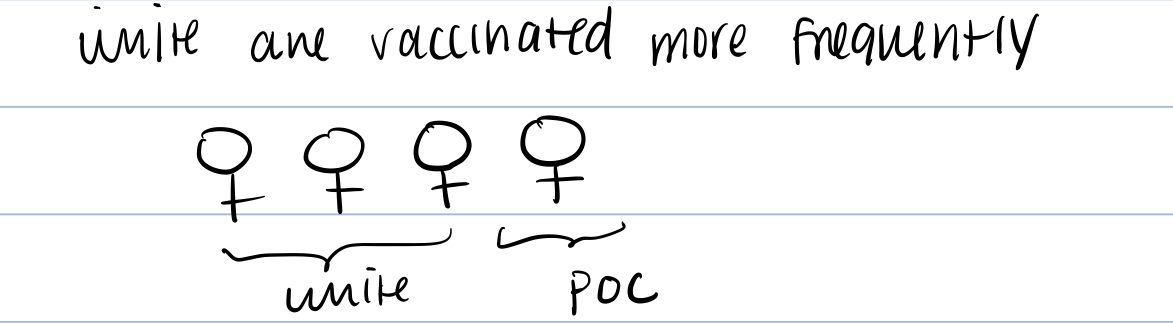 white are vaccinated more frequently
white POC